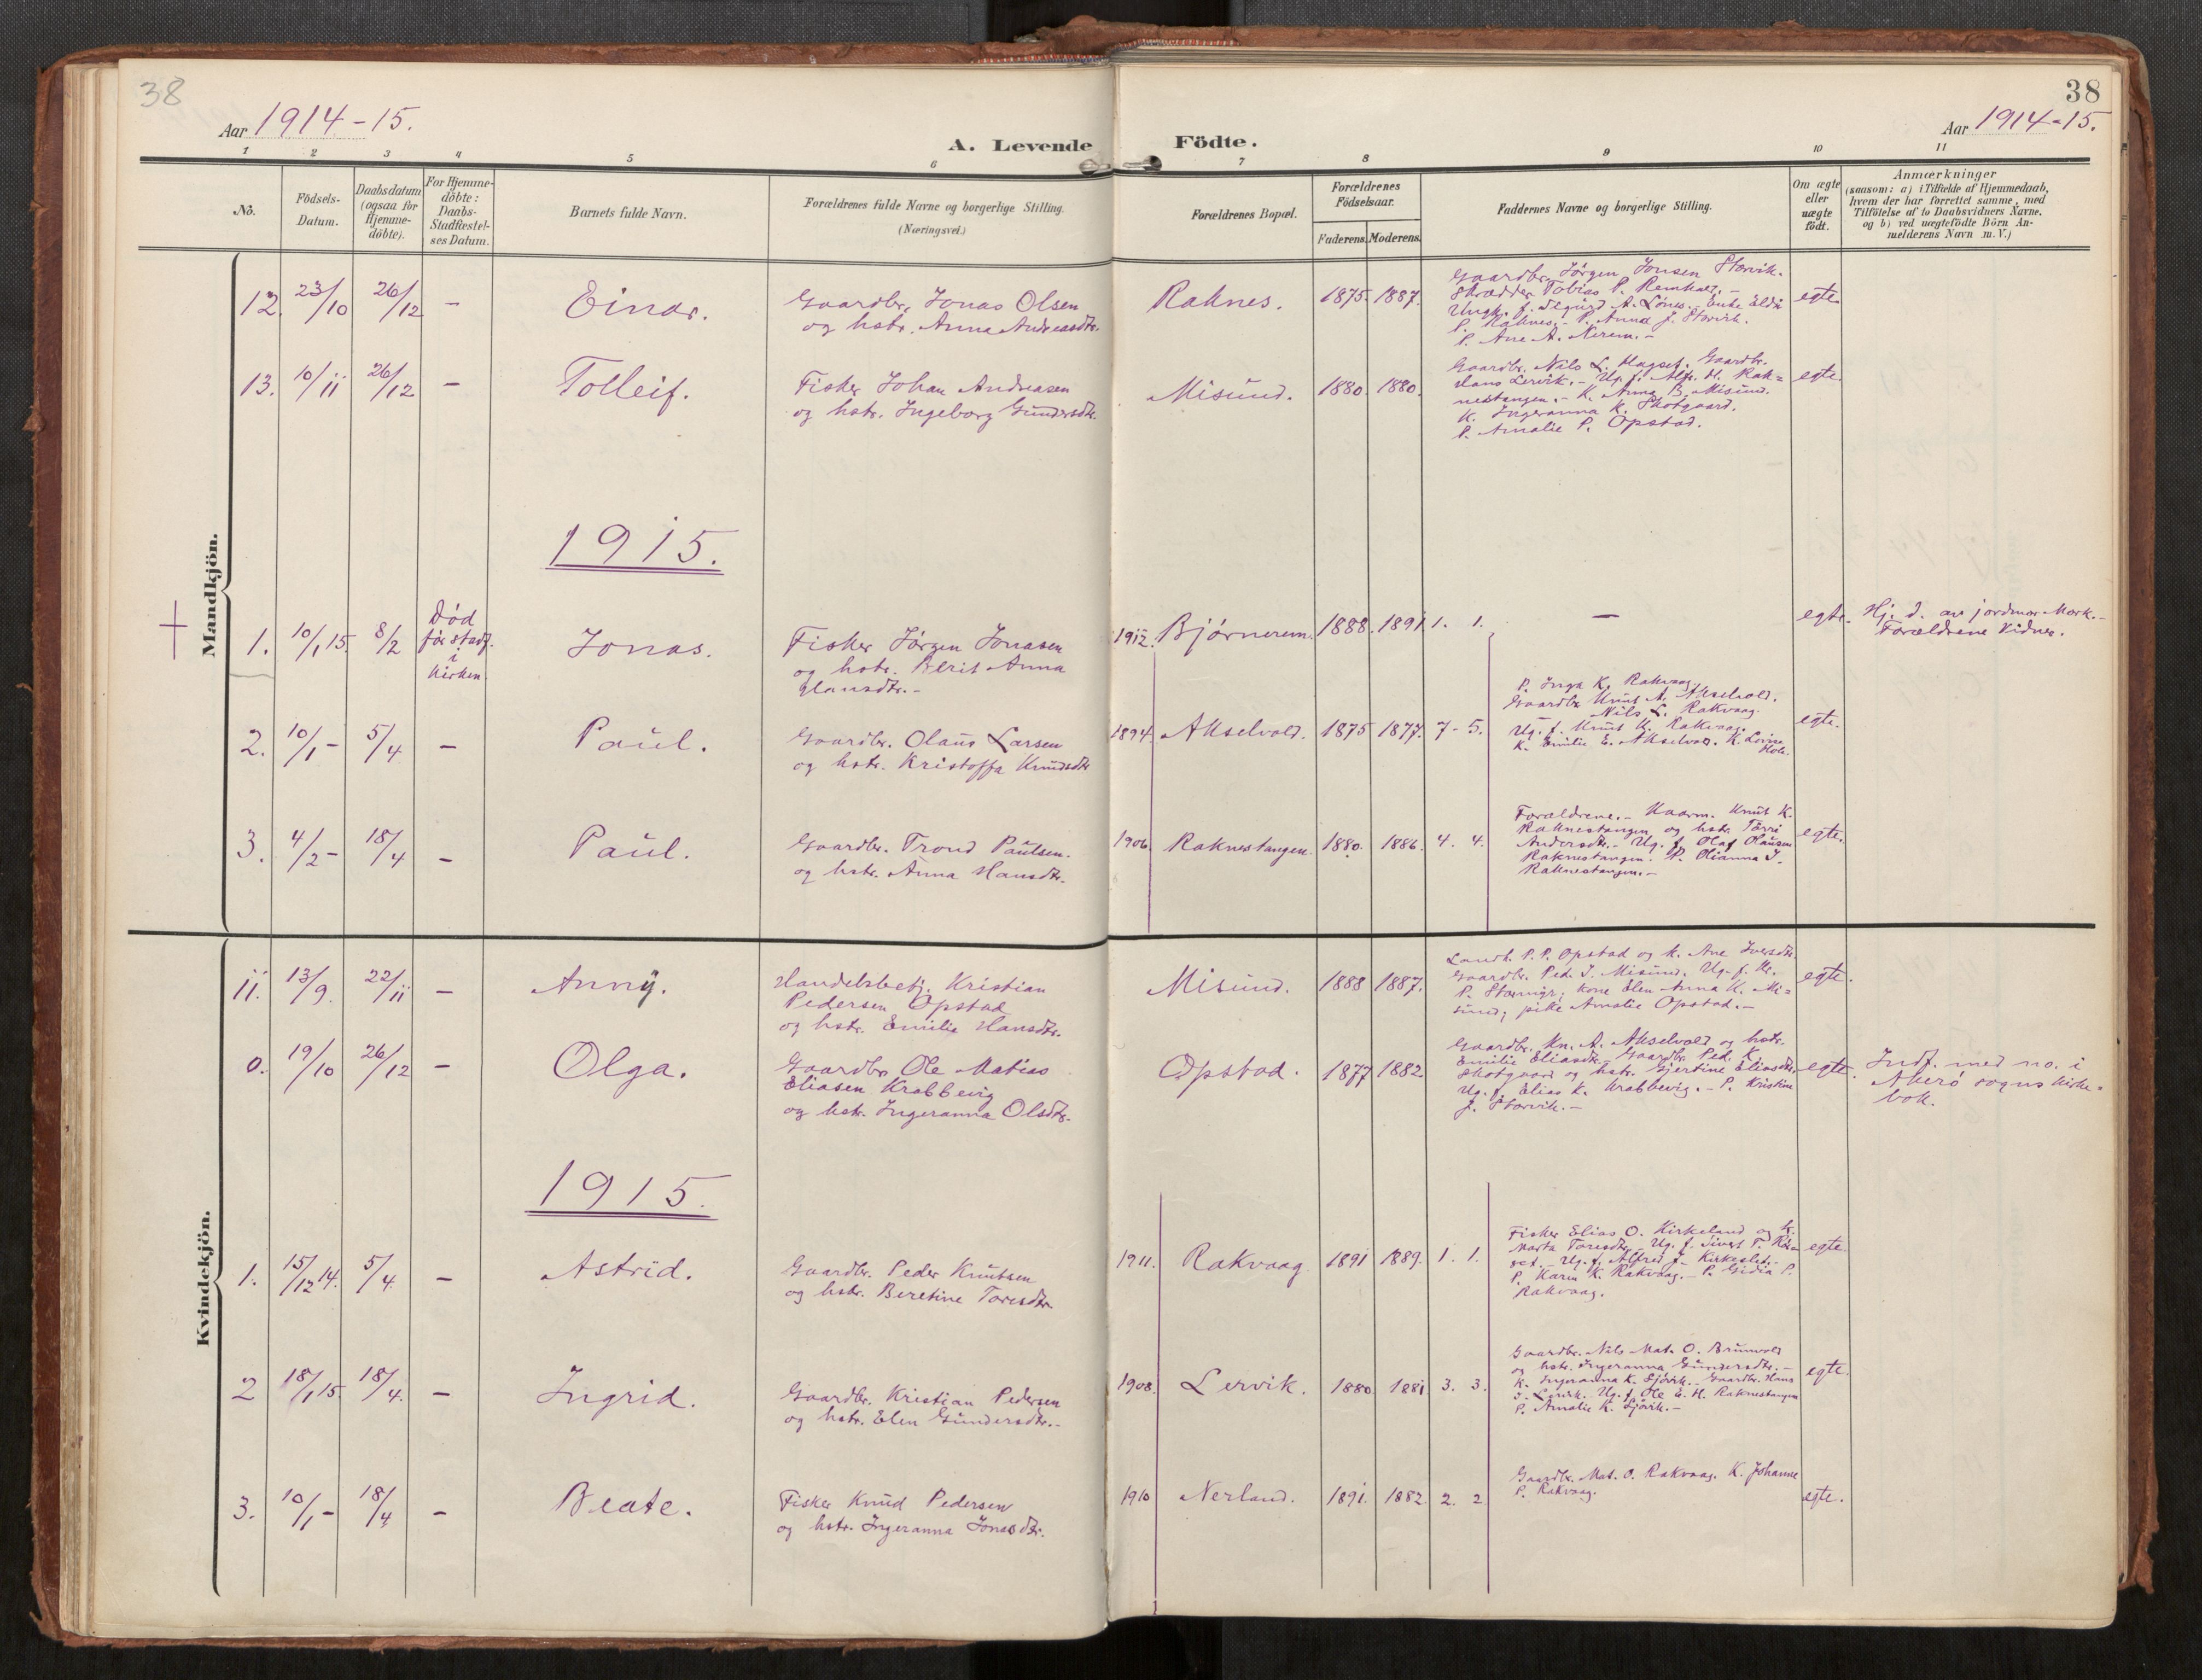 38
38
Aar 1914-15.
A. Levende Födte.
Aar 1914-15.
1 2 3 4 5 6 7 8 9 10 11
No.
Födsels-
Datum.
Daabsdatum
(ogsaa for
Hjemme-
döbte).
For Hjemme-
döbte:
Daabs-
Stadfæstel-
ses Datum.
Barnets fulde Navn.
Forældrenes fulde Navne og borgerlige Stilling.
(Næringsvei.)
Forældrenes Bopæl.
Forældrenes
Födselsaar.
Faderens. Moderens.
Faddernes Navne og borgerlige Stilling.
Om ægte
eller
uægte
födt.
Anmærkninger
(saasom: a) i Tilfælde af Hjemmedaab,
hvem der har forrettet samme, med
Tilföielse af to Daabsvidners Navne,
og b) ved uægtefödte Börn An-
melderens Navn m. V.)
Mandkjön.
12. 23/10 26/12 - Einar.
Gaardbr. Jonas Olsen
og hstr. Anna Andreasdtr.
Raknes. 1875. 1887.
Gaardbr. Jörgen Jonsen Storvik.
Skrædder Tobias P. Remkær. -
Ungk. f. Sigurd A. Lönes. - Enke Eldi
P. Raknes. - P. Anna J. Storvik.
P. Ane A. Nerem. -
egte.
13. 10/11 26/12 - Tolleif.
Fisker Johan Andreasen
og hstr. Ingeborg Gundersdtr.
Misund. 1880. 1880.
Gaardbr. Nils L. Hagset. Gaardbr.
Hans Lervik. - Ug. f. Alfr. H. Rak=
nestangen. - K. Anna B. Misund.
K. Ingeranna K. Skotgaard.
P. Amalie P. Opstad.
egte.
1915.
1. 10/1 15. 8/2
Död
för stadf.
i
Kirken
Jonas.
Fisker Jörgen Jonasen
og hstr. Berit Anna
Hansdtr. -
1912. Björnerem. 1888. 1891 1. 1. -
egte.
Hj. d. av jordmor Mork. -
Forældrene Vidner.
2. 10/1 - 5/4 - Paul.
Gaardbr. Olaus Larsen
og hstr. Kristoffa Knudsdtr
1894. Akselvold. 1875 1877. 7 - 5.
P. Inga K. Rakvaag.
Gaardbr Knut A. Akselvold.
- Nils L. Rakvaag.
Ug. f. Knut K. Rakvaag.
K. Emilie E. Akselvold. K. Lovise
Hole.
egte.
3. 4/2 - 18/4 - Paul.
Gaardbr. Trond Paulsen.
og hstr. Anna Hansdtr.
1906. Raknestangen. 1880. 1886. 4. 4.
Forældrene. - Kaarm. Knut K.
Raknestangen og hstr. Törri
Andersdtr. - Ug. f. Olaf Olausen
Raknestangen. P. Olianna J.
Raknestangen. -
egte.
Kvindekjön.
11. 13/9. 22/11 - Anny.
Handelsbetj. Kristian
Pedersen Opstad
og hstr. Emilie Hansdtr.
Misund. 1888 1887.
Landh. P. P. Opstad og k. Ane Iversdtr
Gaardbr. Ped. J. Misund. Ug. f. Kr.
P. Stornigr; Kone Elen Anna K. Mi=
sund; pike Amalie Opstad. -
egte.
0. 19/10 26/12 - Olga.
Gaardbr Ole Matias
Eliasen Krabbevig
og hstr. Ingeranna Olsdtr.
Opstad. 1877 1882
Gaardbr. Kn. A. Akselvold og hstr.
Emilie Eliasdtr. - Gaardbr. Ped. K.
Skotgaard og hstr. Gjertine Eliasdtr.
Ug. f. Elias K. Krabbevig. - P. Kristine
J. Storvik. -
egte.
Indf. med no. i
Akerö sogns Kirke=
bok.
1915.
1. 15/12 14. 5/4 - Astrid.
Gaardbr. Peder Knutsen
og hstr. Beretine Toresdtr.
1911. Rakvaag. 1891 1889. 1. 1.
Fisker Elias O. Kirkeland og k.
Marta Toresdtr. Ug. f. Sivert T. Rös=
set. - Ug. f. Alfred J. Kirkeslet. -
P. Karen K. Rakvaag. - P. Gidia P.
Rakvaag.
egte.
2 18/1 15. 18/4. - Ingrid.
Gaardbr. Kristian Pedersen
og hstr. Elen Gundersdtr. -
1908. Lervik. 1880. 1881 3. 3.
Gaardbr. Nils Mat. O. Brunvold
og hstr. Ingeranna Gundersdtr. -
K. Ingeranna K. Sjövik. - Gaardbr. Hans
J. Lervik. Ug. f. Ole E. H. Raknestangen
P. Amalie K. Sjövik. -
egte.
3. 10/1 - 18/4 - Beate.
Fisker Knud Pedersen
og hstr. Ingeranna Jonasdtr.
1910 Nerland. 1891. 1882. 2. 2.
Gaardbr. Mat. O. Rakvaag. K. Johanne
P. Rakvaag.
egte.